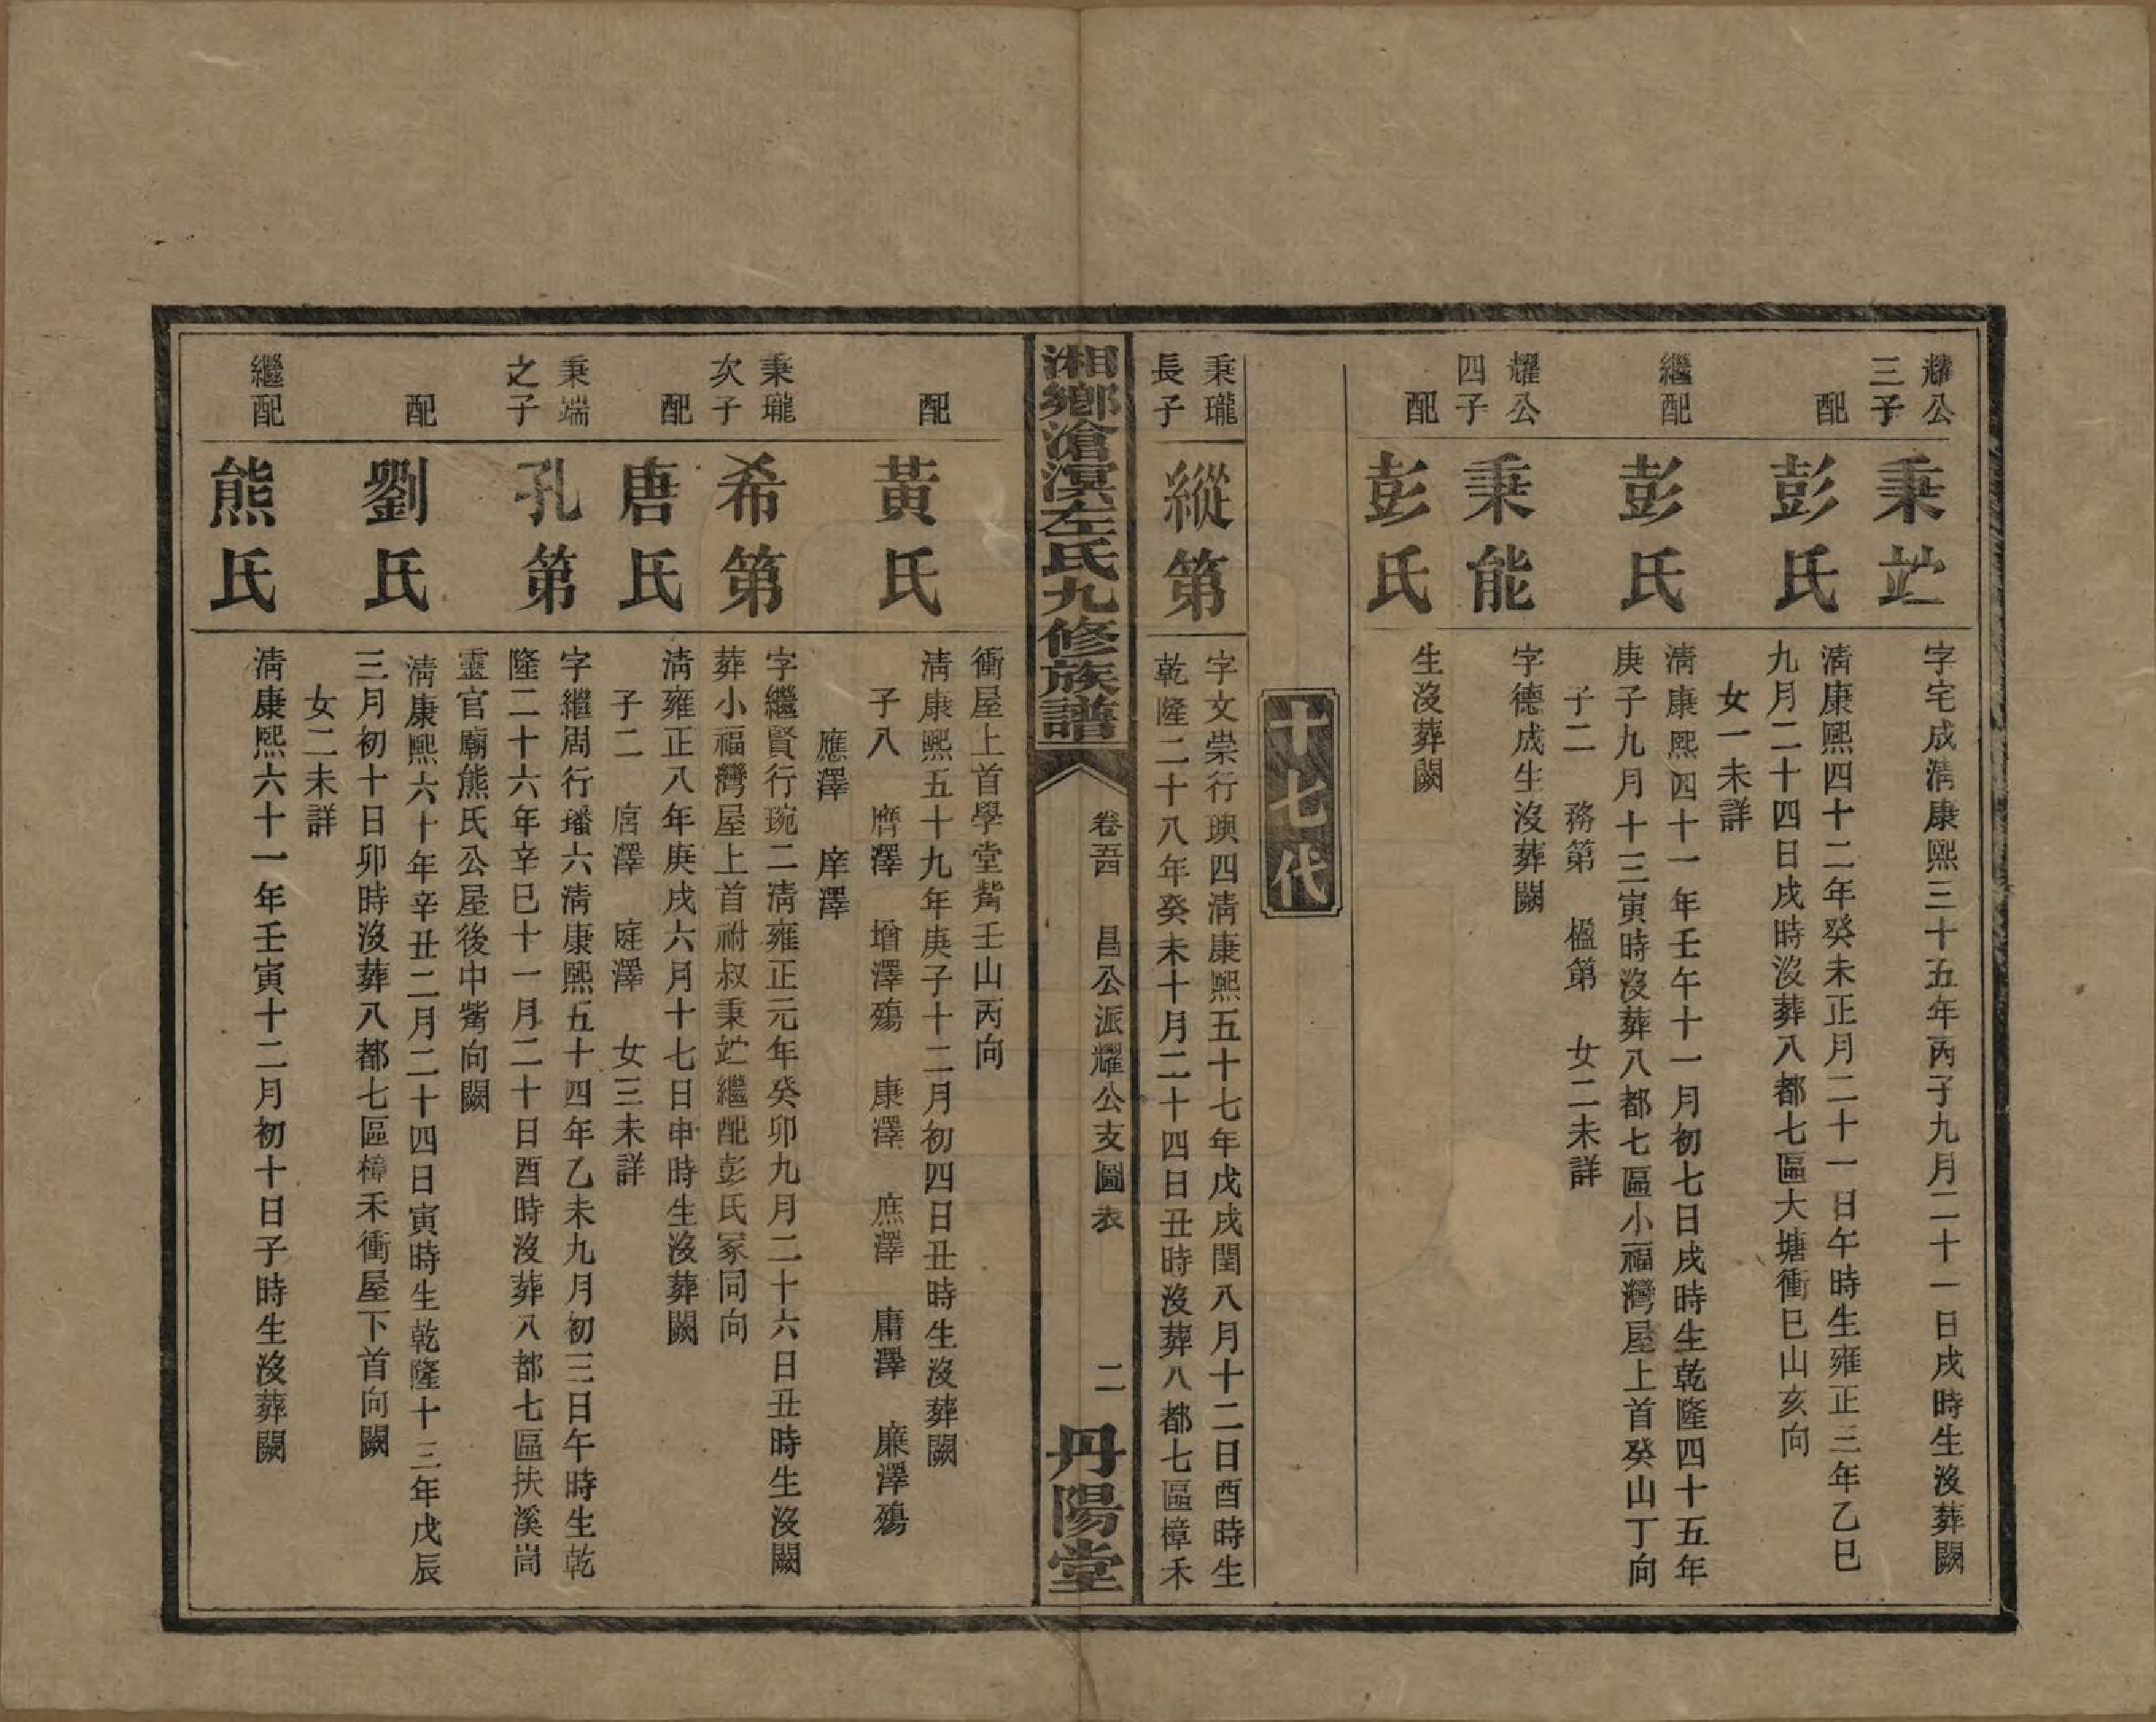 耀公
三子
秉竝
字宅成淸康熙三十五年丙子九月二十一日戌時生沒葬闕
配
彭氏
淸康熙四十二年癸未正月二十一日午時生雍正三年乙巳
九月二十四日戌時沒葬八都七區大塘衝巳山亥向
女一未詳
繼配
彭氏
淸康熙四十一年壬午十一月初七日戌時生乾隆四十五年
庚子九月十三寅時沒葬八都七區小福灣屋上首癸山丁向
子二 務第 楹第 女二未詳
耀公
四子
秉能
字德成生沒葬闕
配
彭氏
生沒葬闕
十七代
秉瓏
長子
縱第
字文崇行璵四淸康熙五十七年戊戌閏八月十二日酉時生
乾隆二十八年癸未十月二十四日丑時沒葬八都七區樟禾
湘鄉滄溟左氏九修族譜
卷五四 昌公派耀公支圖表 二
丹陽堂
衝屋上首學堂觜壬山丙向
配
黃氏
淸康熙五十九年庚子十二月初四日丑時生沒葬闕
子八 麿澤 增澤殤 康澤 庶澤 庸澤 廉澤殤
應澤 庠澤
秉瓏
次子
希第
字繼賢行琬二淸雍正元年癸卯九月二十六日丑時生沒闕
葬小福灣屋上首祔叔秉竝繼配彭氏冢同向
配
唐氏
淸雍正八年庚戌六月十七日申時生沒葬闕
子二 㝛澤 庭澤 女三未詳
秉端
之子
孔第
字繼周行璠六淸康熙五十四年乙未九月初三日午時生乾
隆二十六年辛巳十一月二十日酉時沒葬八都七區扶溪尙
靈官廟熊氏公屋後中觜向闕
配
劉氏
淸康熙六十年辛丑二月二十四日寅時生乾隆十三年戊辰
三月初十日卯時沒葬八都七區樟禾衝屋下首向闕
女二未詳
繼配
熊氏
淸康熙六十一年壬寅十二月初十日子時生沒葬闕